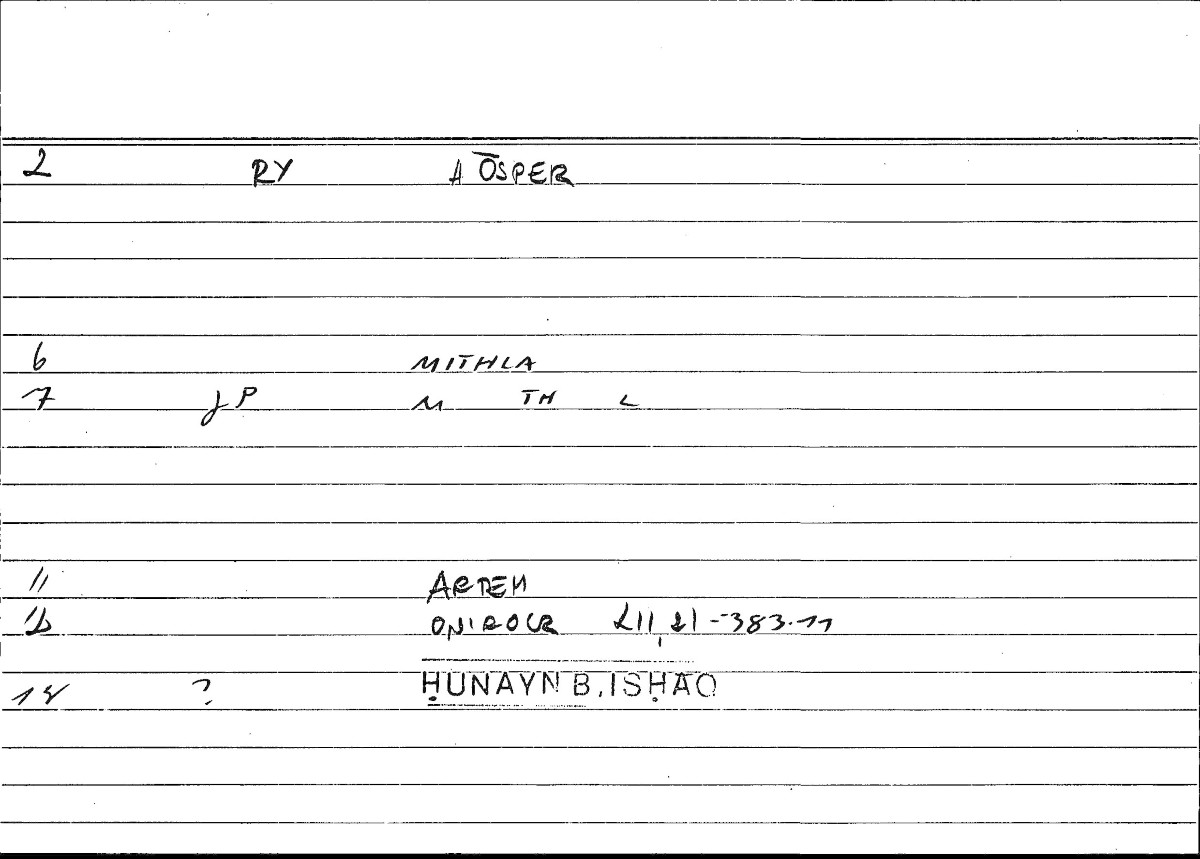 2 RY A ŌSPER
6 MITHLA
7 JP M TH L
11 ARTEM
12 ONIROCR 211,21-383.11
14 ? ḤUNAYN B. ISḤĀQ